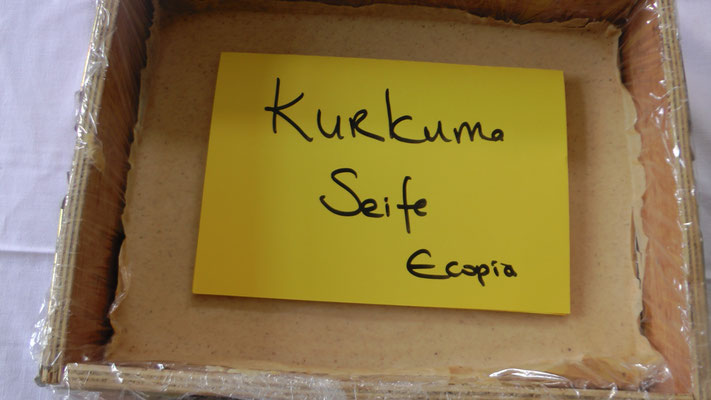 Kurkuma
Seife
Ecopia